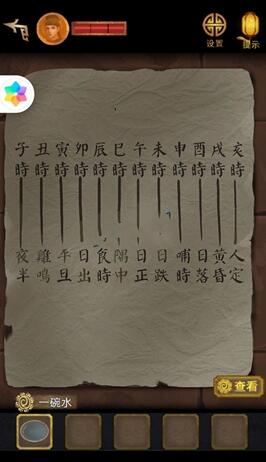 设置
提示
子時 夜半
丑時 雞鳴
寅時 平旦
卯時 日出
辰時 食時
巳時 隅中
午時 日正
未時 日跌
申時 哺時
酉時 日落
戌時 黃昏
亥時 人定
查看
一碗水